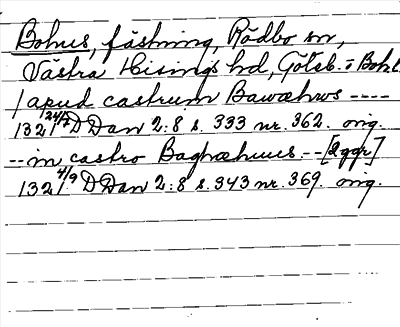 Bohus, fästning, Rödbo sn,
Västra Hisings hd, Göteb. o Boh. l.
/apud castrum Bawæhws ----
1321 24/7 DDan 2:8 s. 333 nr. 362. orig.
-- in castro Baghæhuus -- [2 ggr]
1321 4/9 DDan 2:8 s. 343 nr. 369. orig.